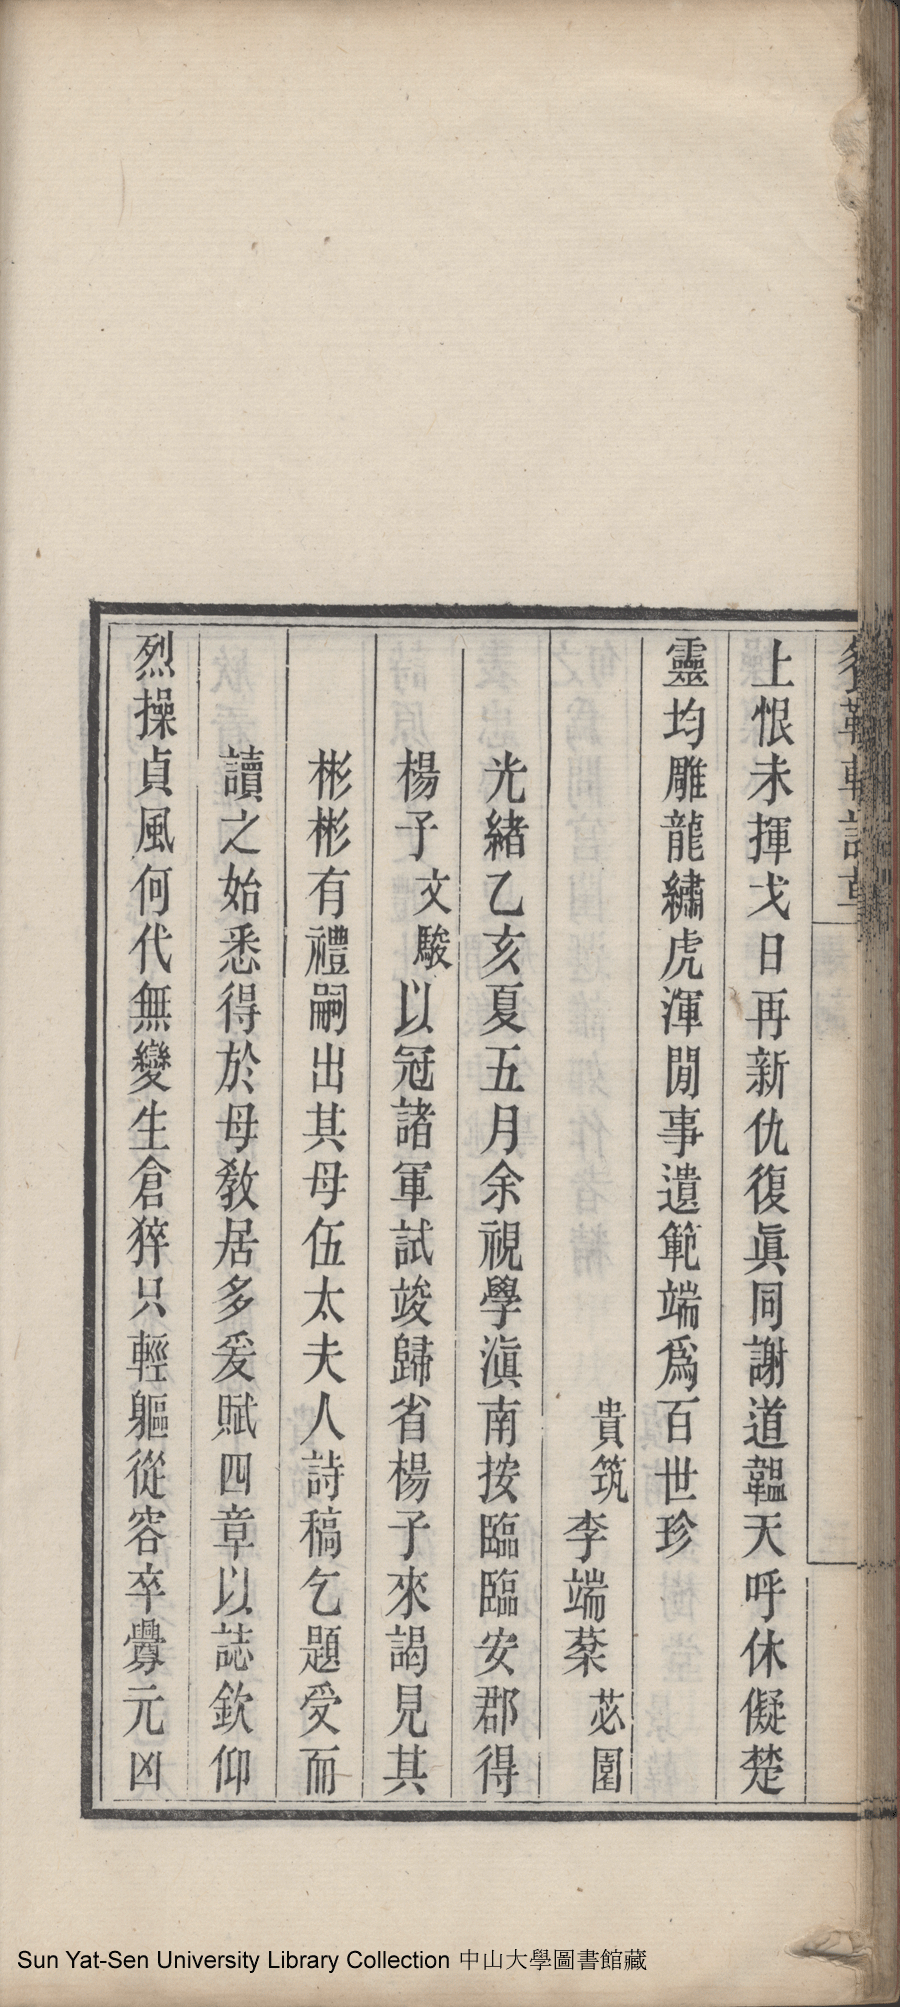 上恨未揮戈日再新仇復眞同謝道韞天呼休儗楚
靈均雕龍繡虎渾閒事遺範端爲百世珍
貴筑李端棻苾園
光緒乙亥夏五月余視學滇南按臨臨安郡得
楊子文駿以冠諸軍試竣歸省楊子來謁見其
彬彬有禮嗣出其母伍太夫人詩稿乞題受而
讀之始悉得於母敎居多爰賦四章以誌欽仰
烈操貞風何代無變生倉猝只輕軀從容卒釁元凶
Sun Yat-Sen University Library Collection 中山大學圖書館藏